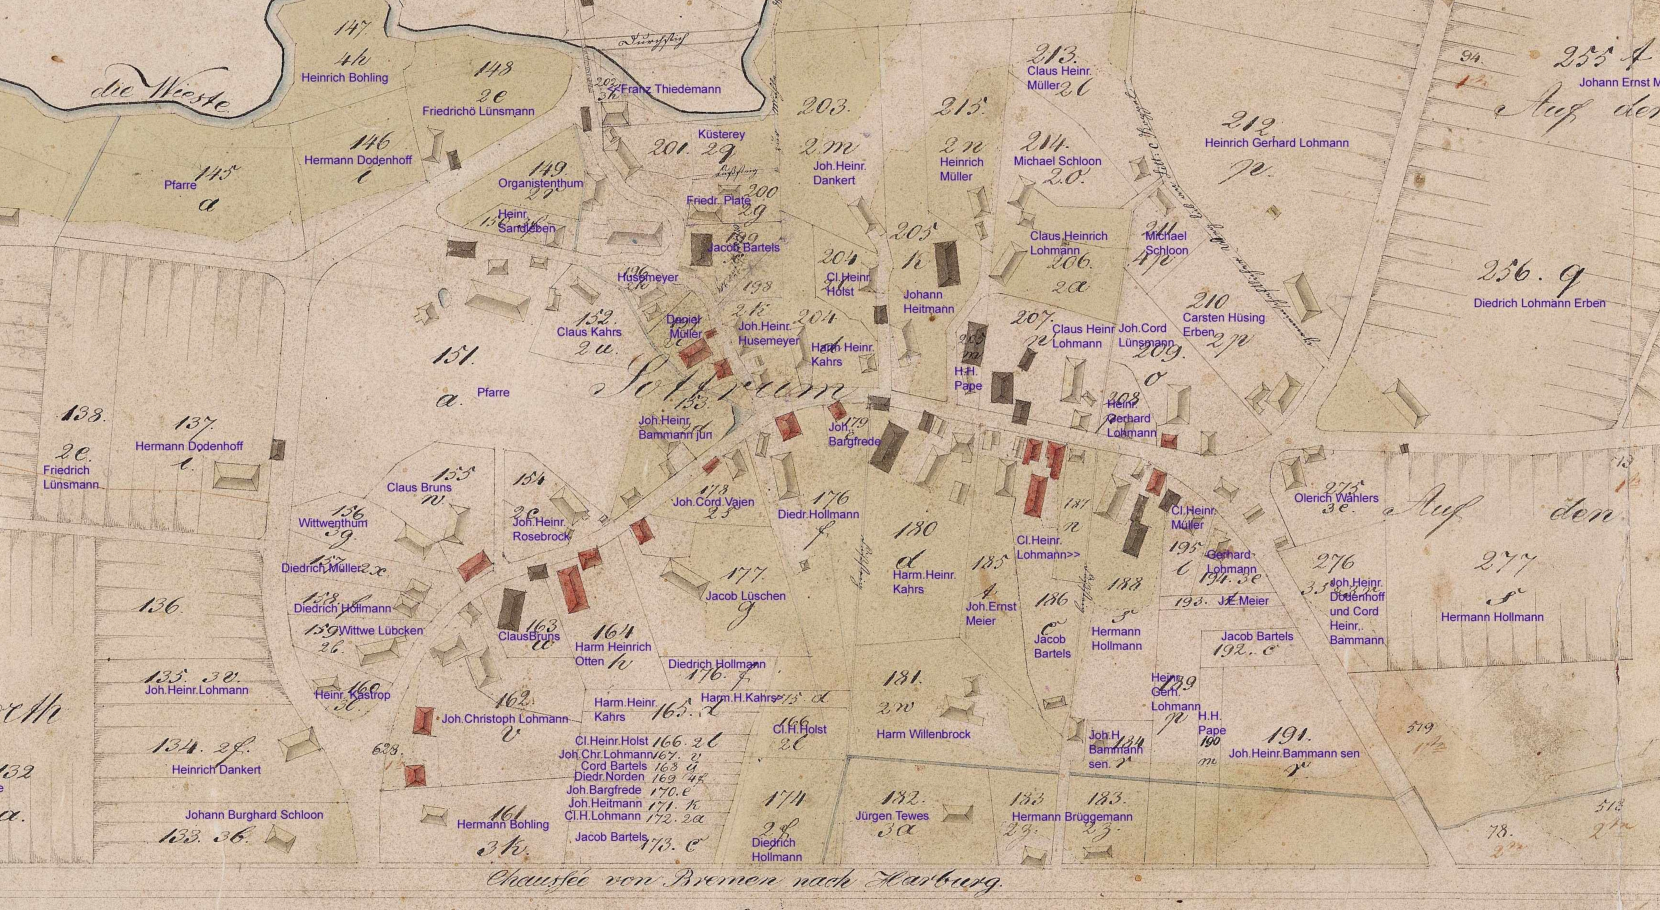 147
4h
Heinrich Bohling
148
2e
Friedrichö Lünsmann
die Wieste
Durchstich
Franz Thiedemann
146
Hermann Dodenhoff
145
Pfarre
a
149
Organistenthum
Heinr.
Sandleben
Küsterey
201. 2g
200
Friedr. Plate
2g
199
Jacob Bartels
203.
2 m
Joh.Heinr.
Dankert
215.
2 n
Heinrich
Müller
213.
Claus Heinr.
Müller
214.
Michael Schloon
2.o.
212
Heinrich Gerhard Lohmann
p.
94.
255 t
Johann Ernst M
Auf den
256. q
Diedrich Lohmann Erben
205
k
Johann
Heitmann
204
Cl.Heinr.
Holst
Claus Heinrich
Lohmann
206.
2a
211
Michael
Schloon
4p
210
Carsten Hüsing
Erben
2p
Husemeyer
198
2k
Joh.Heinr.
Husemeyer
Daniel
Müller
204
Harm Heinr.
Kahrs
152.
Claus Kahrs
2u.
151.
a.
Pfarre
Sottrum
207.
n
Claus Heinr
Lohmann
Joh.Cord
Lünsmann
209.
o
H.H.
Pape
208
Heinr.
Gerhard
Lohmann
138.
2e.
Friedrich
Lünsmann
137.
Hermann Dodenhoff
153.
Joh.Heinr.
Bammann jun
179
Joh.
Bargfrede
155
Claus Bruns
n
154
2c
Joh.Heinr.
Rosebrock
178
Joh.Cord Vajen
2s
176
Diedr.Hollmann
f
156
Wittwenthum
3g
157.
Diedrich Müller
2x
158.
Diedrich Hollmann
159
Wittwe Lübcken
2b.
160
Heinr. Kastrop
180
d
Harm.Heinr.
Kahrs
187
n
Cl.Heinr.
Lohmann>>
Cl.Heinr.
Müller
195
Gerhard
Lohmann
194. 3e
193.
J.E.Meier
275
Olerich Wahlers
3e.
Auf den
276
Joh.Heinr.
Dodenhoff
und Cord
Heinr.
Bammann
277
s
Hermann Hollmann
185
t
Joh.Ernst
Meier
186
c
Jacob
Bartels
188
s
Hermann
Hollmann
Jacob Bartels
192. c
177.
Jacob Lüschen
g
136.
163
ClausBruns
w
164
Harm Heinrich
Otten
h
Diedrich Hollmann
176. f
135. 3v.
Joh.Heinr.Lohmann
134. 2f.
Heinrich Dankert
162
Joh.Christoph Lohmann
v
Harm.Heinr.
Kahrs
165. d
Harm.H.Kahrs>
175 d
166
Cl.H.Holst
2l
181.
2w
Harm Willenbrock
189
Heinr.
Gerh.
Lohmann
p
H.H.
Pape
190
m
191.
Joh.Heinr.Bammann sen
r
Joh.H.
Bammann
sen.
184
r
628.
Cl.Heinr.Holst 166. 2l
Joh.Chr.Lohmann 167. v
Cord Bartels 168 u
Diedr.Norden 169 4k
Joh.Bargfrede 170. e
Joh.Heitmann 171. k
Cl.H.Lohmann 172. 2a
Jacob Bartels 173. c
Johann Burghard Schloon
133. 3b.
161
Hermann Bohling
3k.
174
2f
Diedrich
Hollmann
182.
Jürgen Tewes
3a
183 183.
Hermann Brüggemann
2z. 2z.
519
513
78.
Chaussée von Bremen nach Harburg.